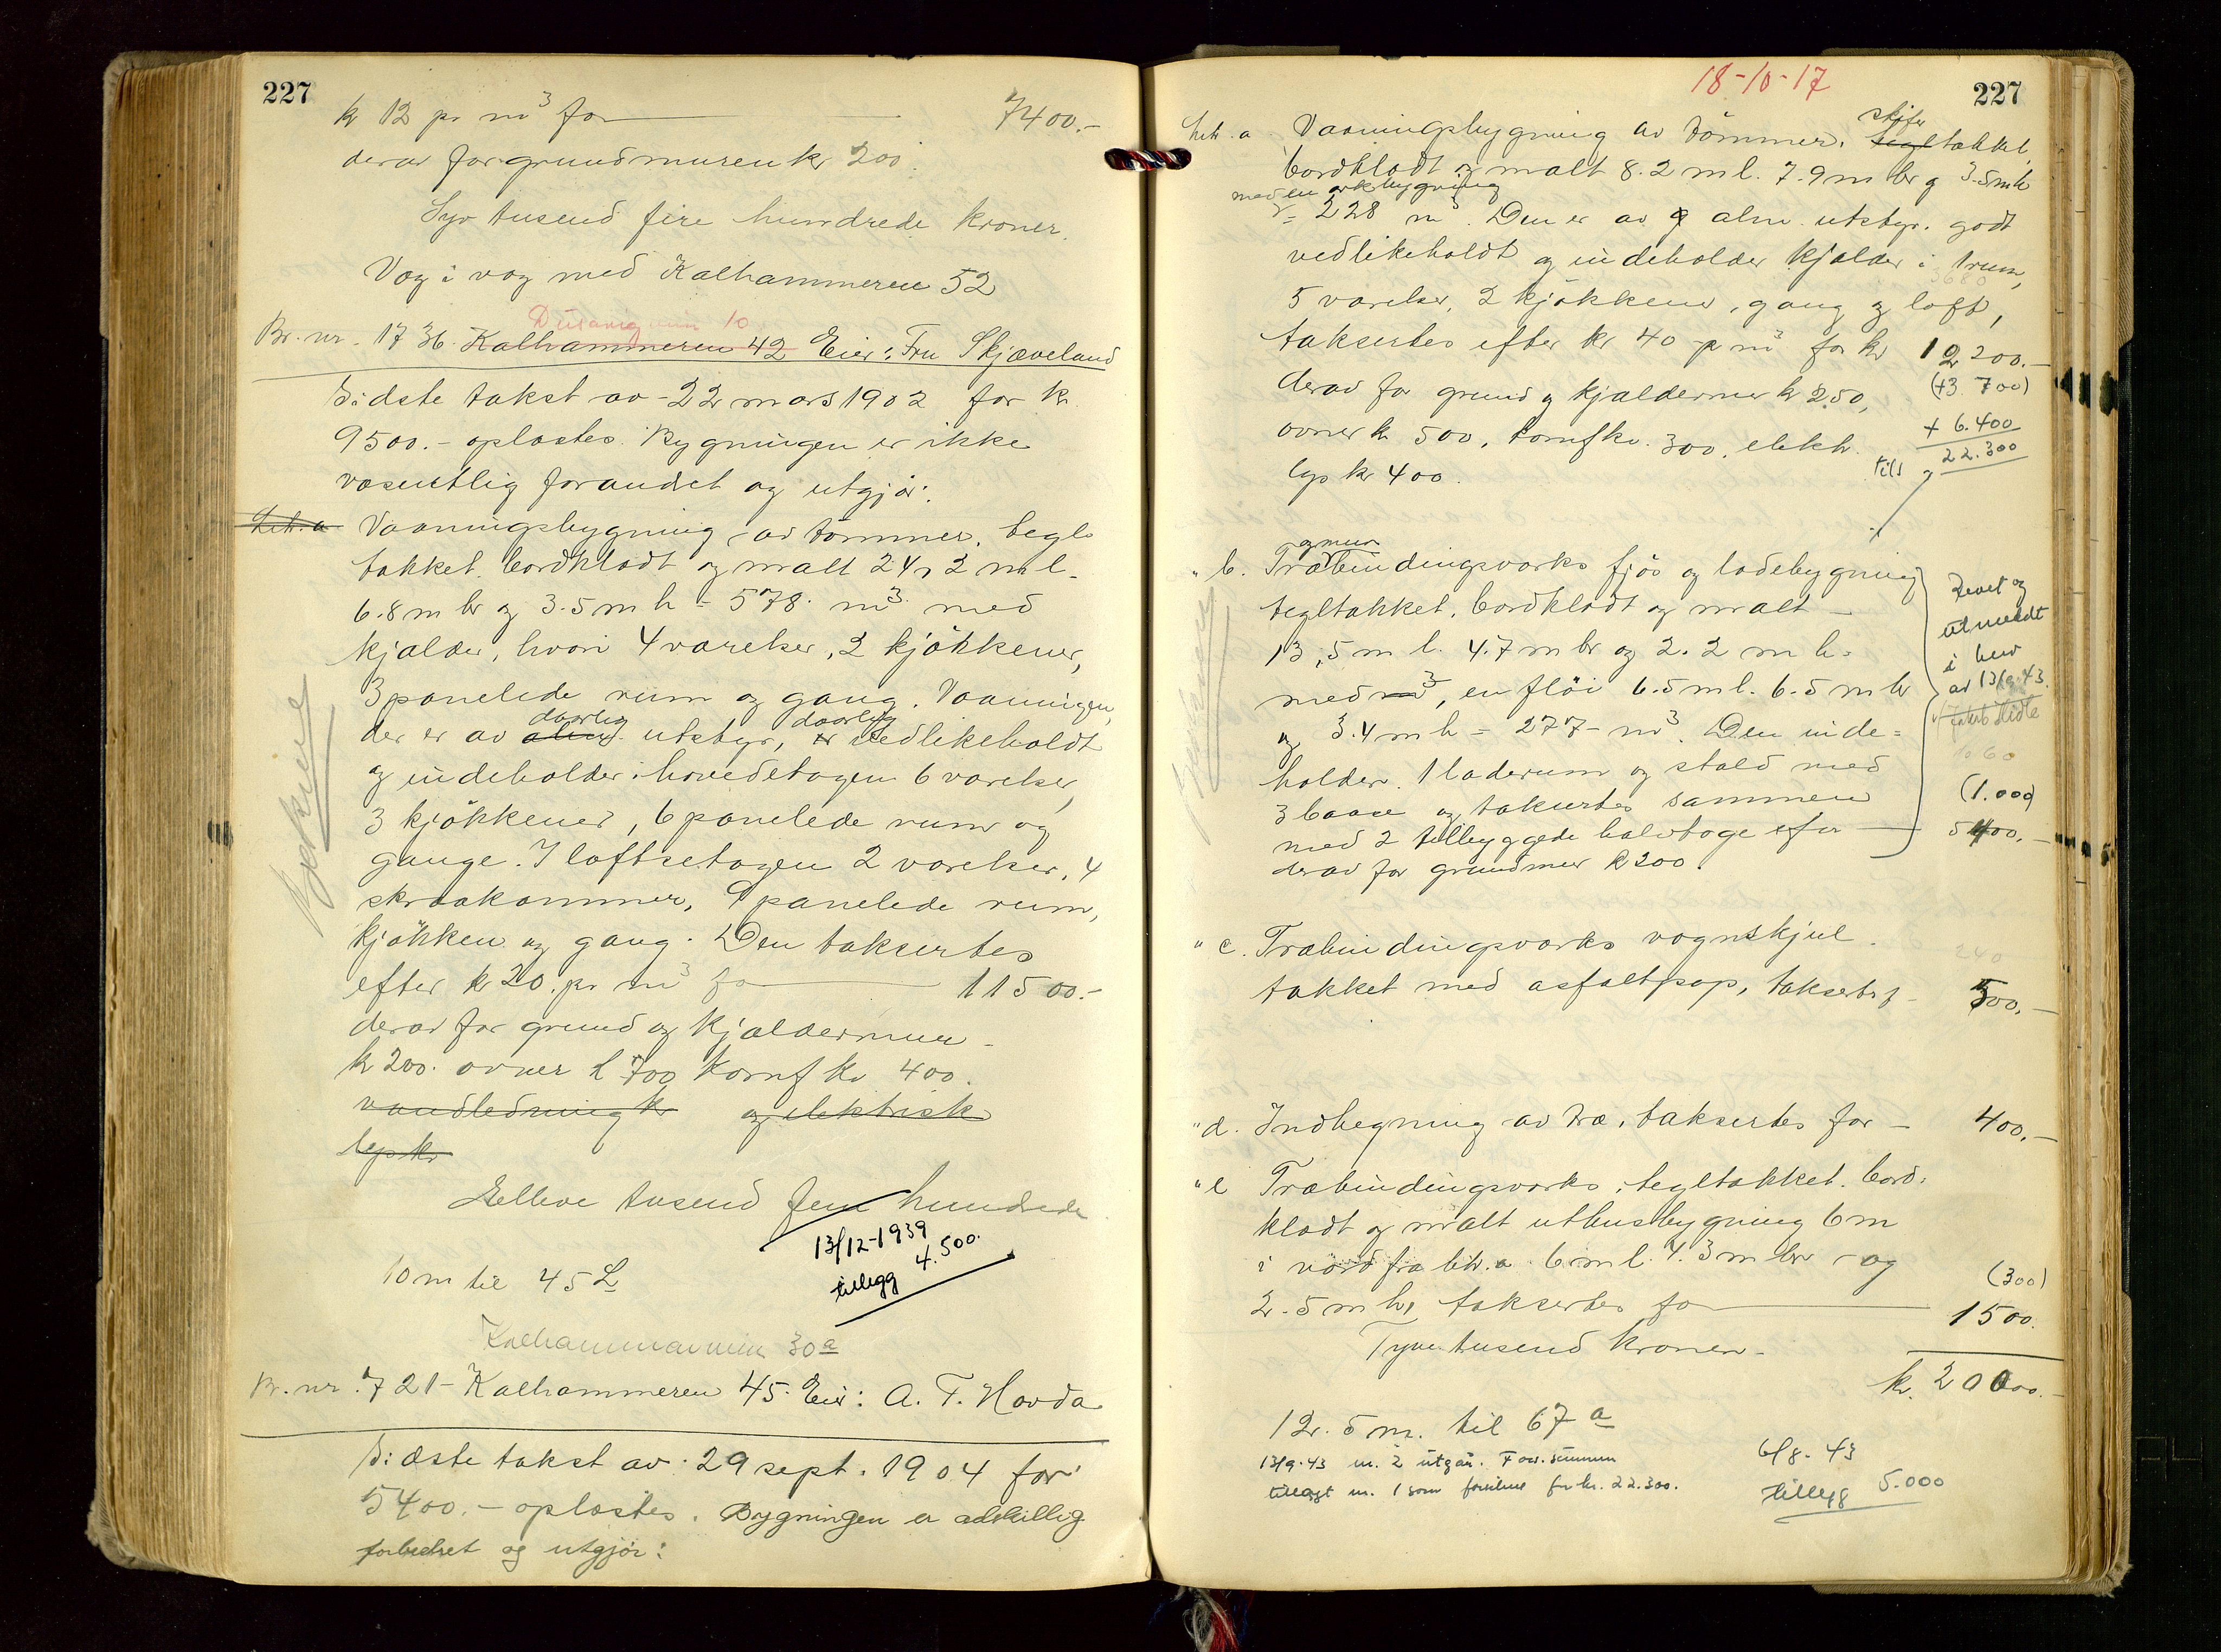 227
kr 12 pr m³ for 7400.-
derav for grundmuren kr 200.
Syv tusend fire hundrede kroner.
Væg i væg med Kalhammeren 52
Dusavigveien 10
Br. nr. 1736. Kalhammeren 42 Eier: Fru Skjæveland
Sidste takst av 22 mars 1902 for kr
9500.- oplæstes. Bygningen er ikke
væsentlig forandret og utgjör:
Litr. a Vaaningsbygning av tömmer, tegl-
tækket, bordklædt og malt 24,2 m l.
6.8 m br og 3.5 m h = 578 m³ med
kjælder, hvori 4 værelser, 2 kjökkener,
3 panelede rum og gang. Vaaningen,
daarlig daarlig
der er av alm. utstyr, er vedlikeholdt
og indeholder i hovedetagen 6 værelser,
3 kjökkener, 6 panelede rum og
gange. I loftsetagen 2 værelser, 4
skraakammer, 9 panelede rum,
kjökken og gang. Den takseres
efter kr 20. pr m³ for 11500.-
derav for grund og kjældermur
kr 200. ovner kr 700 komf kr 400.
vandledning kr og elektrisk
lys kr
Elleve tusend fem hundrede
13/12-1939
tillegg 4.500.
10 m til 45 L
Kalhammarveien 30a
Br. nr. 721- Kalhammeren 45. Eier: A. T. Hovda
Sidste takst av 29 sept. 1904 for
5400.- oplæstes. Bygningen er adskillig
forbedret og utgjör:
18-10-17
227
skifer
Litr. a Vaaningsbygning av tömmer, tegltækket,
bordklædt og malt 8.2 m l. 7.9 m br og 3.5 m h
med en arkbygning
= 228 m³. Den er av alm. utstyr, godt
vedlikeholdt og indeholder kjælder i 1 rum,
5 værelser, 2 kjökkener, gang og loft,
takseres efter kr 40 pr m³ for kr 12200.-
derav for grund og kjældermur kr 250, (+3.700)
ovner kr 500, komf kr. 300, elektr. + 6.400
lys kr 400. tils 22.300
og mur
" b. Træbindingsværks fjös og ladebygning
tegltækket, bordklædt og malt
13,5 m l. 4.7 m br og 2.2 m h.
med m³, en flöi 6.5 m l. 6.5 m br
og 3.4 m h = 277 m³. Den inde-
holder 1 laderum og stald med
3 baase og takseres sammen (1.000)
med 2 tilbyggede halvtage for 5400.-
derav for grundmur kr 200.
Revet og
utmeldt
i brev
av 13/9.43.
" c. Træbindingsværks vognskjul
240
tækket med asfaltpap, takseres f 500.-
" d. Indhegning av træ, takseres for 400.-
" e Træbindingsværks, tegltækket, bord-
klædt og malt uthusbygning 6 m
i nord fra litr. a 6 m l. 4.3 m br og (300)
2.5 m h, takseres for 1500.
Tyve tusend kroner
kr. 20000.-
12.5 m. til 67 a
13/9-43 nr. 2 utgår. Fors.summen
tillagt nr. 1 som forsikres for kr. 22.300.
6/8-43
tillegg 5.000
Hjørkene